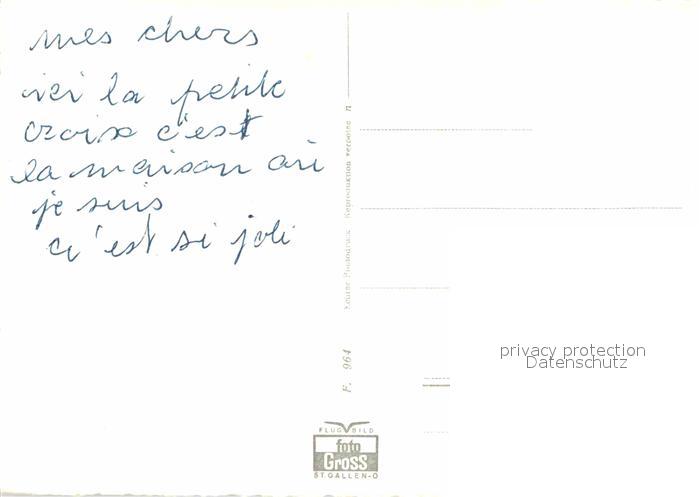 mes chers
ici la petite
croix c'est
la maison où
je suis
c'est si joli
Reproduction verboten
F. 964
FLUGBILD
foto
Gross
ST.GALLEN-O
privacy protection
Datenschutz